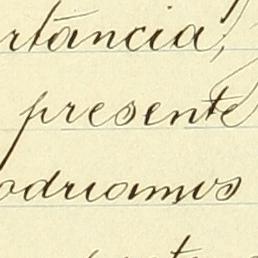 rtância,
presente
odriamos